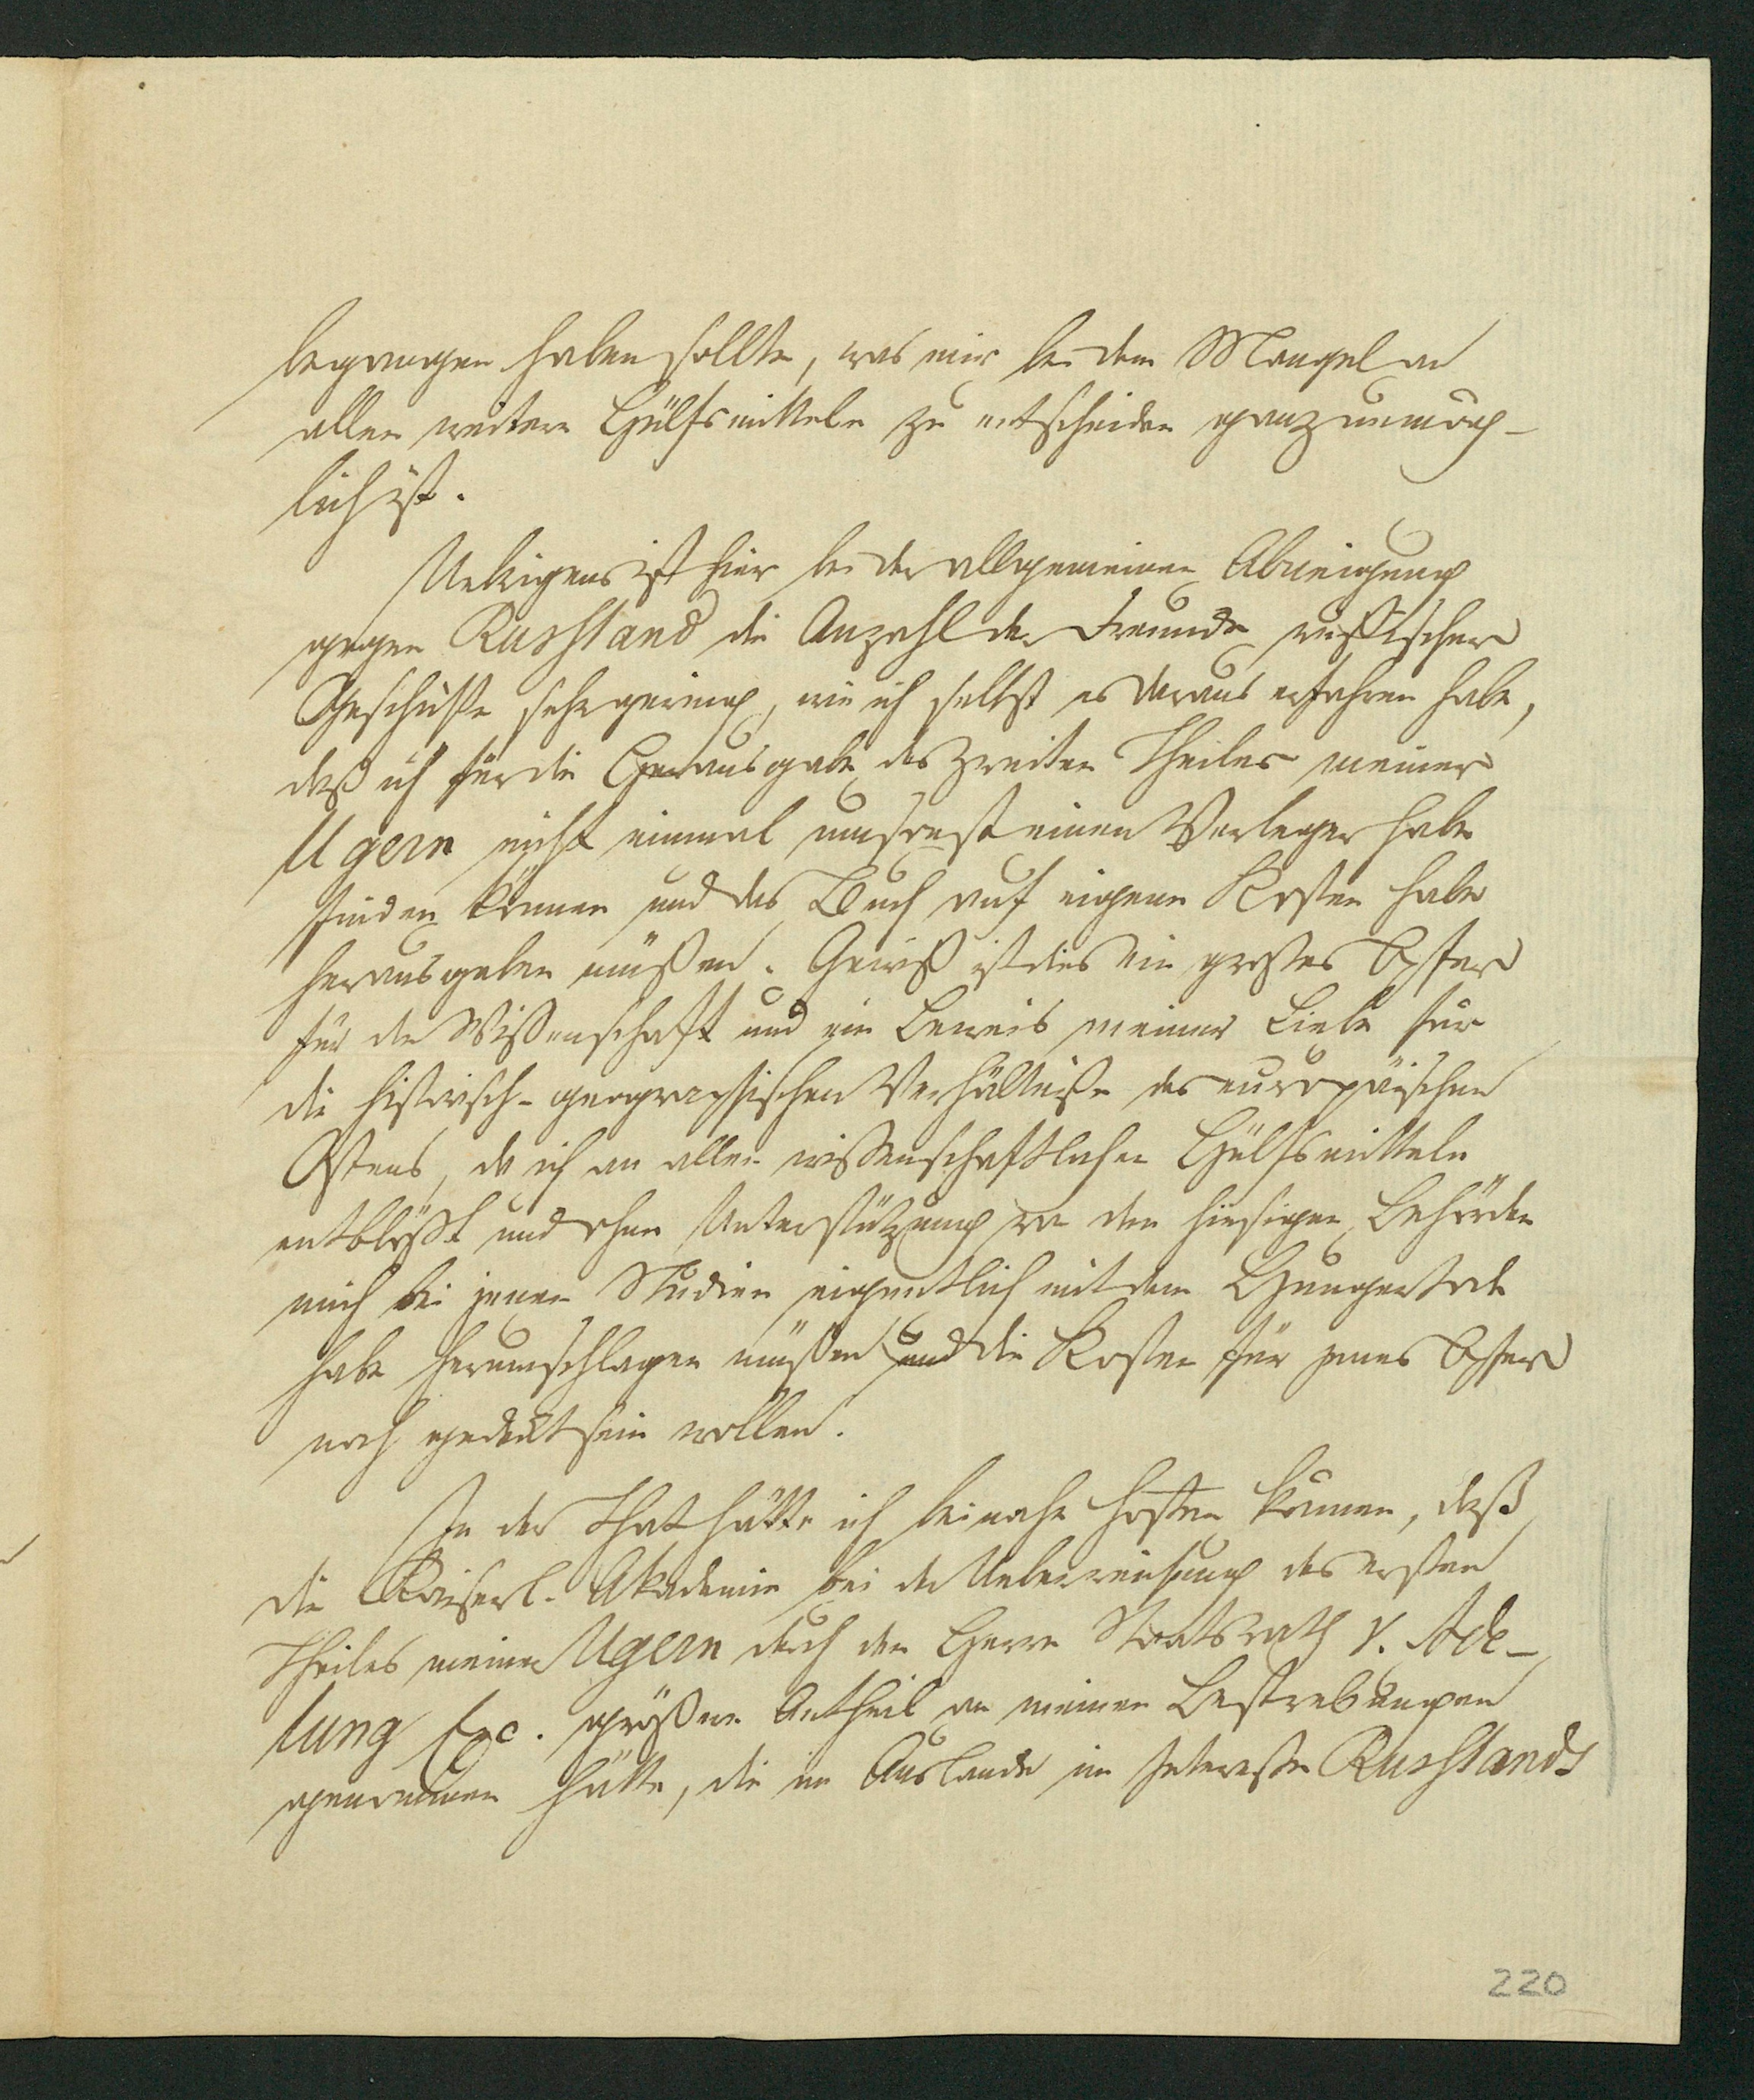 begangen haben sollte, was mir bei dem Mangel an
allen weitern Hülfsmitteln zu entscheiden ganz unmög-
lich ist.
Uebrigens ist hier bei der allgemeinen Abneigung
gegen Russland die Anzahl der Freunde russischer
Geschichte sehr gering, wie ich selbst es daraus erfahren habe,
daß ich für die Herausgabe des zweiten Theiles meiner
Ugern nicht einmal umsonst einen Verleger habe
finden können und das Buch auf eigene Kosten habe
herausgeben müßen. Gewiß ist dies ein großes Opfer
für die Wißenschaft und ein Beweis meiner Liebe für
die historisch-geographischen Verhältniße des europäischen
Ostens, da ich an allen wißenschaftlichen Hülfsmitteln
entblößt und ohne Unterstützung von den hiesigen Behörden
mich bei jenen Studien eigentlich mit dem Hungertode
habe herumschlagen müßen und die Kosten für jenes Opfer
noch gedeckt sein wollen.
In der That hätte ich beinahe hoffen können, daß
die Kaiserl. Akademie bei der Ueberreichung des ersten
Theiles meiner Ugern durch den Herrn Staatsrath v. Ade-
lung Exc. größern Antheil an meinen Bestrebungen
genommen hätte, die im Auslande im Interesse Russlands
220